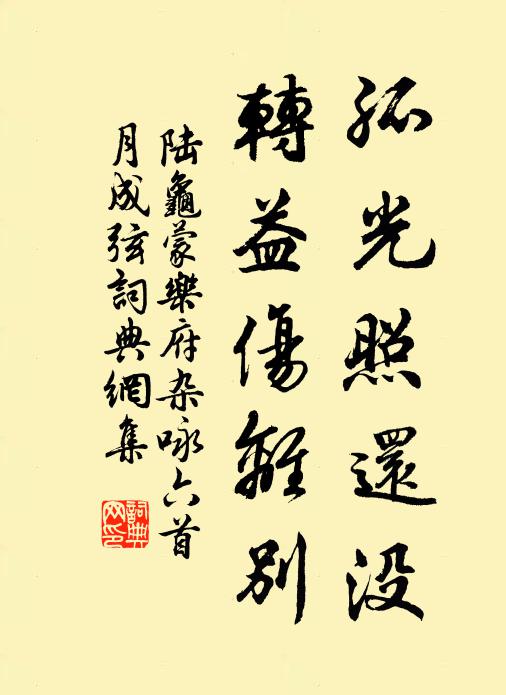 孤光照還没
轉益傷離別
陆龜蒙樂府杂咏六首
月成弦詞典網集
詞典网印